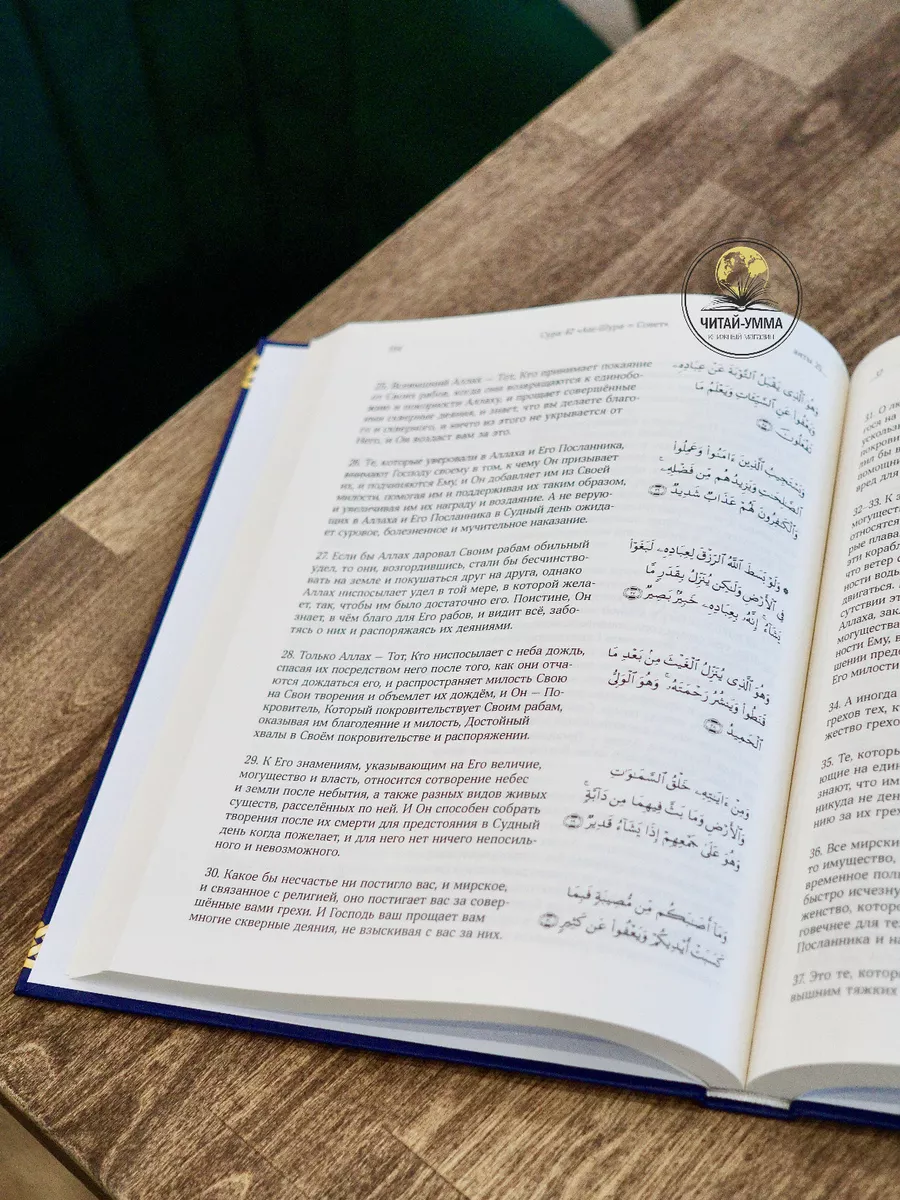 ЧИТАЙ-УММА
КНИЖНЫЙ МАГАЗИН
Сура 42 «Аш-Шура — Совет»
25. Всевышний Аллах — Тот, Кто принимает покаяние
от Своих рабов, когда они возвращаются к единобо-
жию и покорности Аллаху, и прощает совершённые
ими скверные деяния, и знает, что вы делаете благо-
го и скверного, и ничто из этого не укрывается от
Него, и Он воздаст вам за это.
وَهُوَ ٱلَّذِى يَقْبَلُ ٱلتَّوْبَةَ عَنْ عِبَادِهِۦ
وَيَعْفُوا۟ عَنِ ٱلسَّيِّـَٔاتِ وَيَعْلَمُ مَا
تَفْعَلُونَ ٢٥
26. Те, которые уверовали в Аллаха и Его Посланника,
внимают Господу своему в том, к чему Он призывает
их, и подчиняются Ему, и Он добавляет им из Своей
милости, помогая им и поддерживая их таким образом,
и увеличивая им их награду и воздаяние. А не верую-
щих в Аллаха и Его Посланника в Судный день ожида-
ет суровое, болезненное и мучительное наказание.
وَيَسْتَجِيبُ ٱلَّذِينَ ءَامَنُوا۟ وَعَمِلُوا۟
ٱلصَّـٰلِحَـٰتِ وَيَزِيدُهُم مِّن فَضْلِهِۦ ۚ
وَٱلْكَـٰفِرُونَ لَهُمْ عَذَابٌ شَدِيدٌ ٢٦
27. Если бы Аллах даровал Своим рабам обильный
удел, то они, возгордившись, стали бы бесчинство-
вать на земле и покушаться друг на друга, однако
Аллах ниспосылает удел в той мере, в которой жела-
ет, так, чтобы им было достаточно его. Поистине, Он
знает, в чём благо для Его рабов, и видит всё, забо-
тясь о них и распоряжаясь их деяниями.
۞ وَلَوْ بَسَطَ ٱللَّهُ ٱلرِّزْقَ لِعِبَادِهِۦ لَبَغَوْا۟
فِى ٱلْأَرْضِ وَلَـٰكِن يُنَزِّلُ بِقَدَرٍ مَّا
يَشَآءُ ۚ إِنَّهُۥ بِعِبَادِهِۦ خَبِيرٌۢ بَصِيرٌ ٢٧
28. Только Аллах — Тот, Кто ниспосылает с неба дождь,
спасая их посредством него после того, как они отча-
ются дождаться его, и распространяет милость Свою
на Свои творения и объемлет их дождём, и Он — По-
кровитель, Который покровительствует Своим рабам,
оказывая им благодеяние и милость, Достойный
хвалы в Своём покровительстве и распоряжении.
وَهُوَ ٱلَّذِى يُنَزِّلُ ٱلْغَيْثَ مِنۢ بَعْدِ مَا
قَنَطُوا۟ وَيَنشُرُ رَحْمَتَهُۥ ۚ وَهُوَ ٱلْوَلِىُّ
ٱلْحَمِيدُ ٢٨
29. К Его знамениям, указывающим на Его величие,
могущество и власть, относится сотворение небес
и земли после небытия, а также разных видов живых
существ, расселённых по ней. И Он способен собрать
творения после их смерти для предстояния в Судный
день когда пожелает, и для него нет ничего непосиль-
ного и невозможного.
وَمِنْ ءَايَـٰتِهِۦ خَلْقُ ٱلسَّمَـٰوَٰتِ
وَٱلْأَرْضِ وَمَا بَثَّ فِيهِمَا مِن دَآبَّةٍ ۚ
وَهُوَ عَلَىٰ جَمْعِهِمْ إِذَا يَشَآءُ قَدِيرٌ ٢٩
30. Какое бы несчастье ни постигло вас, и мирское,
и связанное с религией, оно постигает вас за совер-
шённые вами грехи. И Господь ваш прощает вам
многие скверные деяния, не взыскивая с вас за них.
وَمَآ أَصَـٰبَكُم مِّن مُّصِيبَةٍ فَبِمَا
كَسَبَتْ أَيْدِيكُمْ وَيَعْفُوا۟ عَن كَثِيرٍ ٣٠
31. О л
ускольз
покрови
лил бы в
помощни
вред для
32–33. К з
могуществ
относятся
рые плава
эти корабл
что ветер с
ности воды
двигаться.
сутствии эт
Аллаха, зак
могущества
ности Ему, в
шении предс
Его милости
34. А иногда
грехов тех, к
жество грехо
35. Те, которы
ющие на един
знают, что им
никуда не ден
нию за их грех
36. Все мирски
то имущество,
временное пол
быстро исчезну
женство, которо
говечнее для те
Посланника и на
37. Это те, котор
вышним тяжких